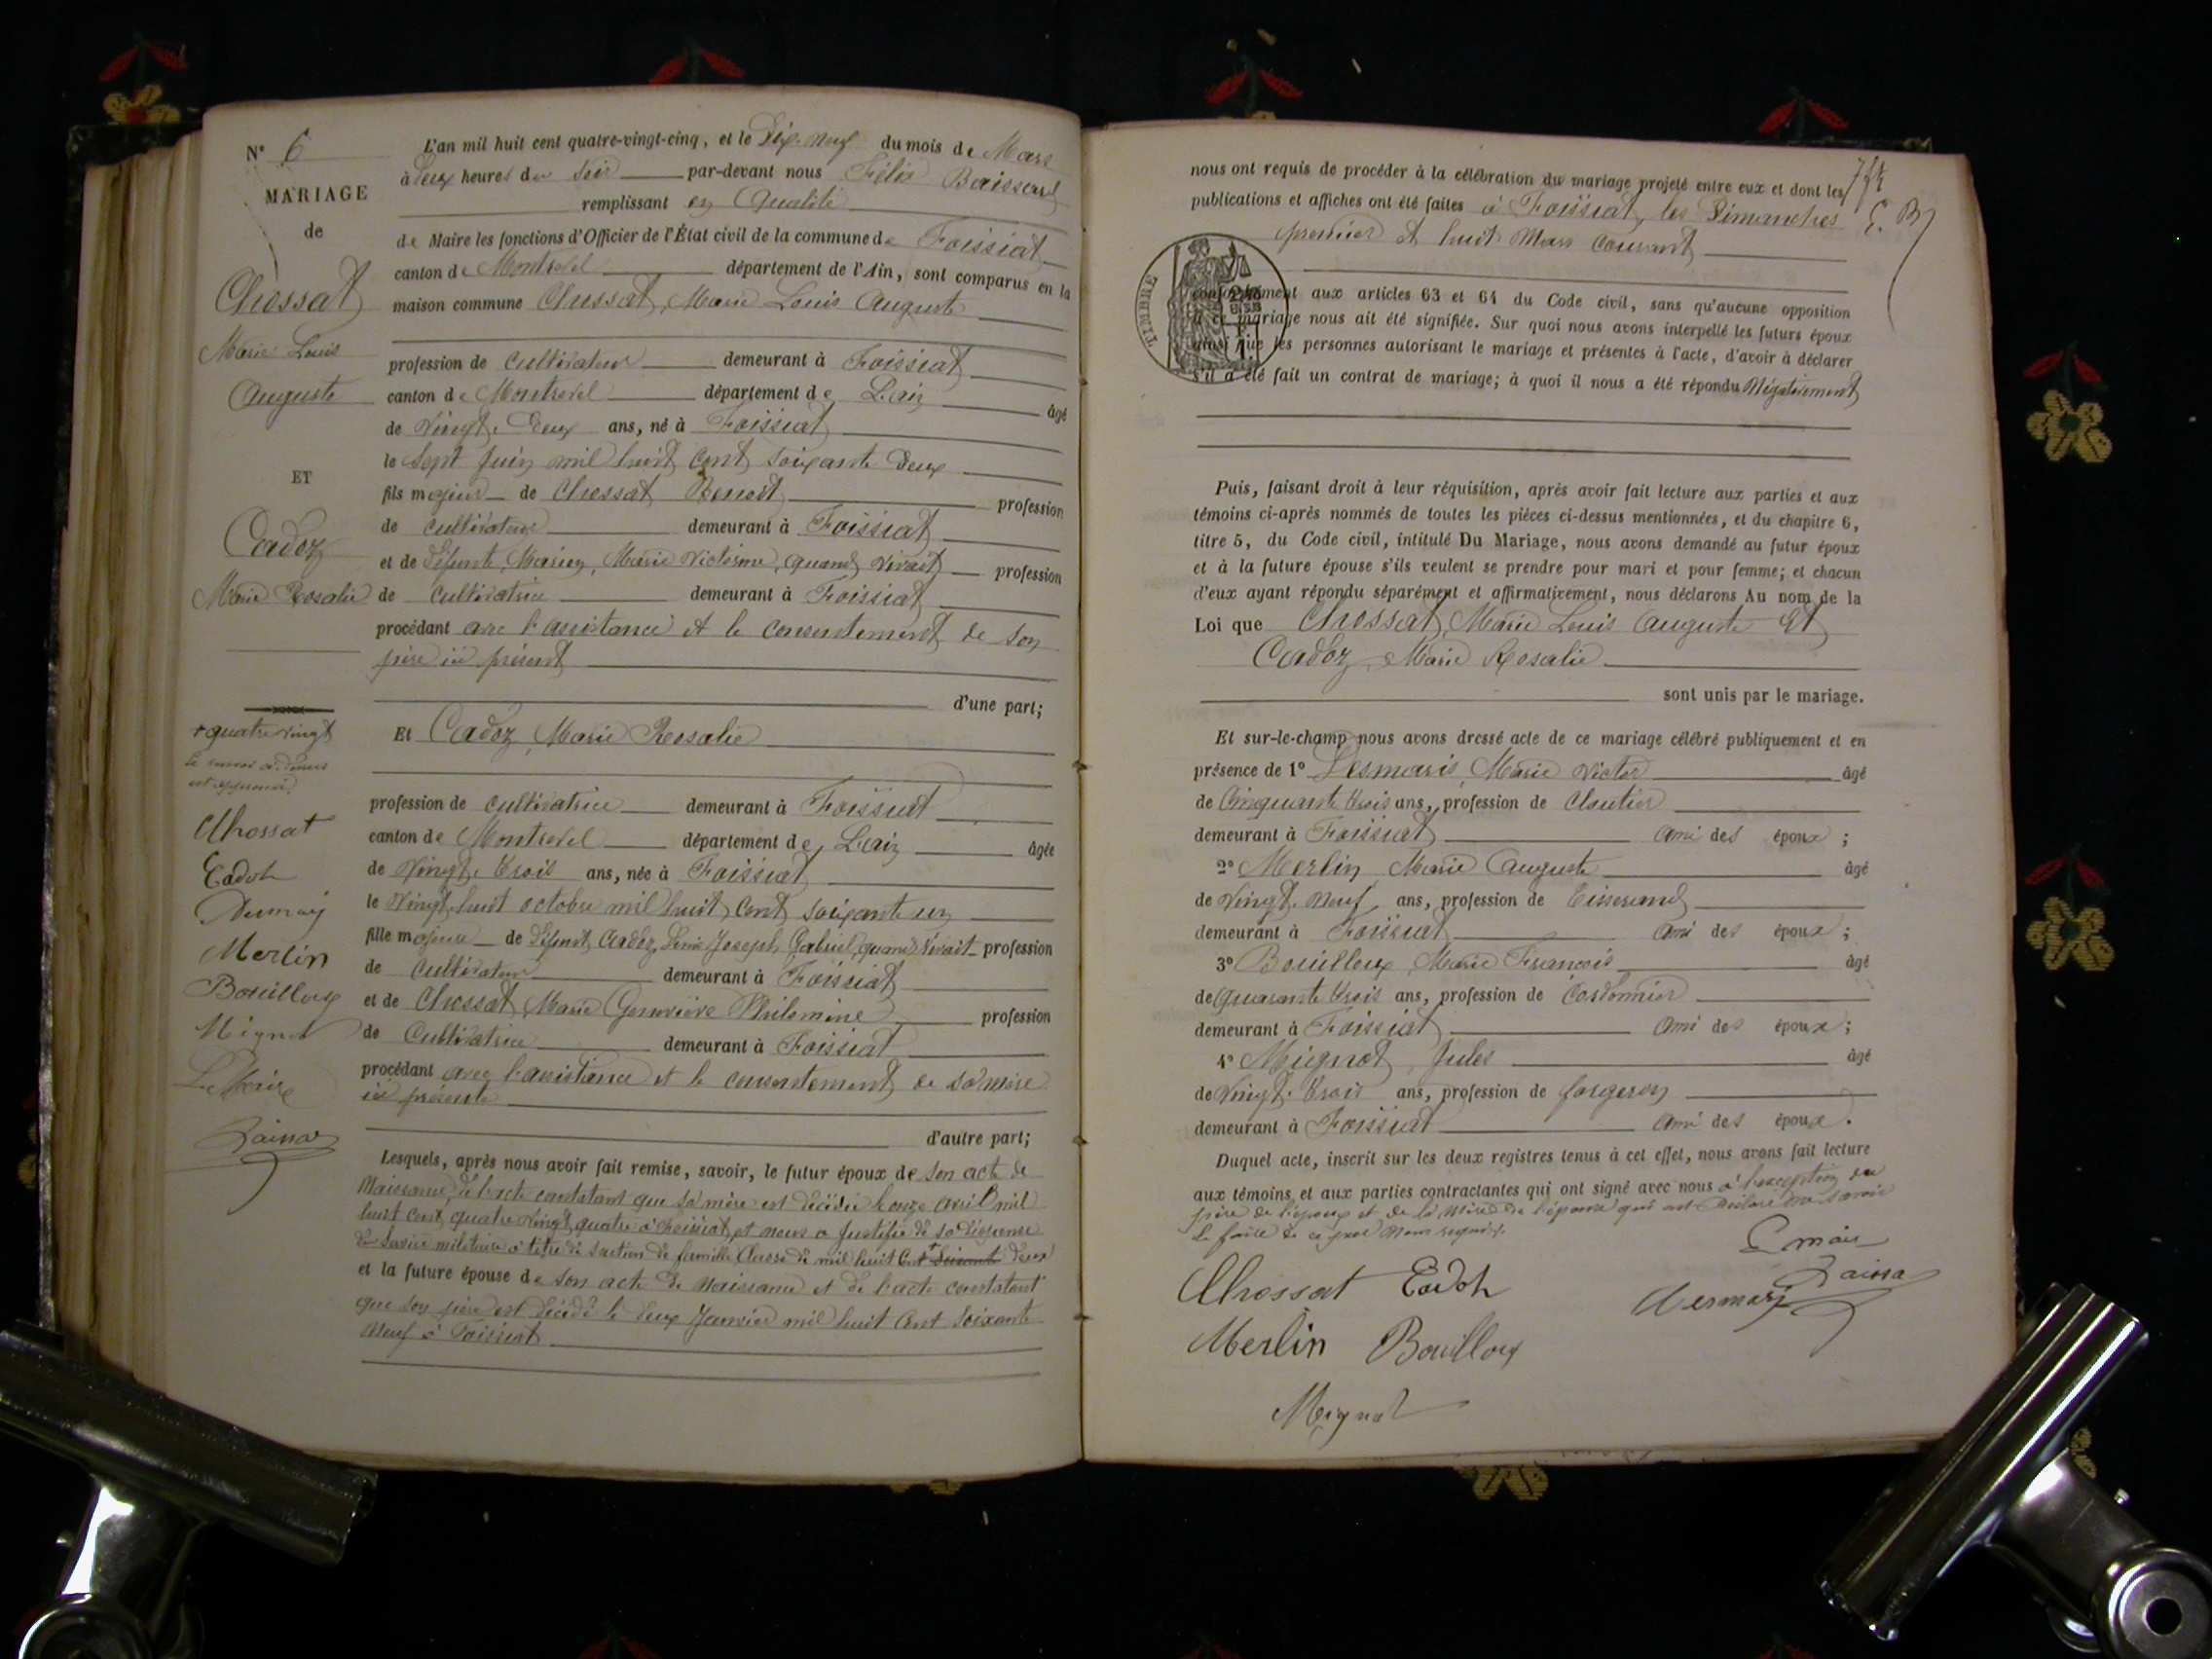 N° 6
MARIAGE
de
Chossat
Marie Louis
Auguste
ET
Cadoz
Marie Rosalie
+ quatre vingt
est approuvé
Chossat
Cadoz
Merlin
Bouilloux
Mignot
Le Maire
L'an mil huit cent quatre-vingt-cinq, et le Dix-Neuf du mois de Mars
à Deux heures du Soir par-devant nous Félix
remplissant en Qualité
de Maire les fonctions d'Officier de l'État civil de la commune de Foissiat
canton de Montrevel département de l'Ain, sont comparus en la
maison commune Chossat, Marie Louis Auguste
profession de cultivateur demeurant à Foissiat
canton de Montrevel département de L'ain âgé
de Vingt-Deux ans, né à Foissiat
le Sept Juin mil huit cent soixante deux
fils majeur de Chossat Benoit profession
de cultivateur demeurant à Foissiat
et de Défunte, Marie Victorine, quand vivait profession
de cultivatrice demeurant à Foissiat
procédant avec l'assistance et le consentement de son
père ici présent
d'une part;
Et Cadoz Marie Rosalie
profession de cultivatrice demeurant à Foissiat
canton de Montrevel département de L'ain âgée
de Vingt-trois ans, née à Foissiat
le Vingt-huit octobre mil huit cent soixante un
fille majeure de Défunt Cadoz, Denis Joseph Gabriel, quand vivait profession
de cultivateur demeurant à Foissiat
et de Chossat Marie Geneviève Philomène profession
de Cultivatrice demeurant à Foissiat
procédant avec l'assistance et le consentement de sa mère
ici présente
d'autre part;
Lesquels, après nous avoir fait remise, savoir, le futur époux de son acte de
Naissance, de l'acte constatant que sa mère est décédée le onze avril mil
huit cent quatre vingt quatre à Foissiat, et nous a justifié de sa dispense
du service militaire à titre de soutien de famille Classe de mil huit Cent + soixante deux
et la future épouse de son acte de Naissance et de l'acte constatant
que son père est décédé le deux Janvier mil huit cent soixante
neuf à Foissiat
nous ont requis de procéder à la célébration du mariage projeté entre eux et dont les
publications et affiches ont été faites à Foissiat, les Dimanches
premier et huit Mars Courant
TIMBRE
conformément aux articles 63 et 64 du Code civil, sans qu'aucune opposition
à ce mariage nous ait été signifiée. Sur quoi nous avons interpellé les futurs époux
ainsi que les personnes autorisant le mariage et présentes à l'acte, d'avoir à déclarer
s'il a été fait un contrat de mariage; à quoi il nous a été répondu Négativement
Puis, faisant droit à leur réquisition, après avoir fait lecture aux parties et aux
témoins ci-après nommés de toutes les pièces ci-dessus mentionnées, et du chapitre 6,
titre 5, du Code civil, intitulé Du Mariage, nous avons demandé au futur époux
et à la future épouse s'ils veulent se prendre pour mari et pour femme; et chacun
d'eux ayant répondu séparément et affirmativement, nous déclarons Au nom de la
Loi que Chossat, Marie Louis Auguste Et
Cadoz, Marie Rosalie
sont unis par le mariage.
Et sur-le-champ nous avons dressé acte de ce mariage célébré publiquement et en
présence de 1° Desmaris, Marie Victor âgé
de Cinquante trois ans, profession de Cloutier
demeurant à Foissiat ami des époux ;
2° Merlin Marie Auguste âgé
de Vingt-Neuf ans, profession de Tisserand
demeurant à Foissiat ami des époux ;
3° Bouilloux, Marie François âgé
de Quarante trois ans, profession de Cordonnier
demeurant à Foissiat ami des époux ;
4° Mignot, Jules âgé
de Vingt-trois ans, profession de forgeron
demeurant à Foissiat ami des époux.
Duquel acte, inscrit sur les deux registres tenus à cet effet, nous avons fait lecture
aux témoins et aux parties contractantes qui ont signé avec nous à l'exception du
père de l'époux et de la Mère de l'épouse qui ont déclaré ne savoir
le faire de ce par nous requis.
Chossat Cadoz
Merlin Bouilloux
Mignot